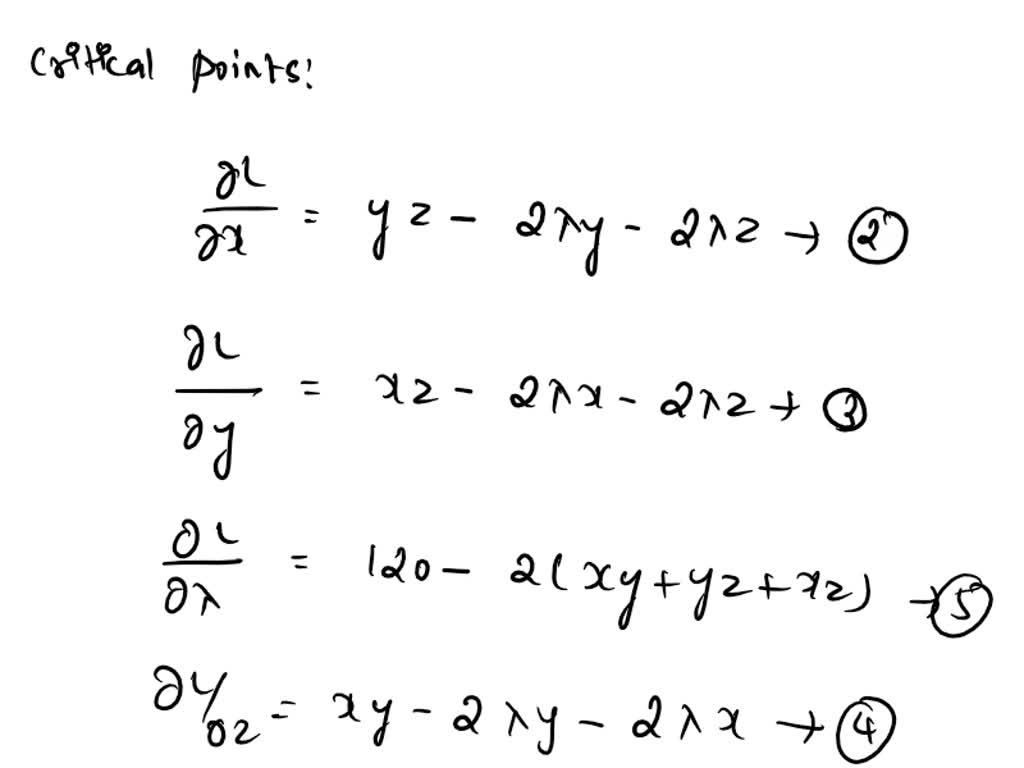 Critical points:
∂L/∂x = yz - 2λy - 2λz → ②
∂L/∂y = xz - 2λx - 2λz → ③
∂L/∂λ = 120 - 2(xy + yz + xz) → ⑤
∂L/∂z = xy - 2λy - 2λx → ④